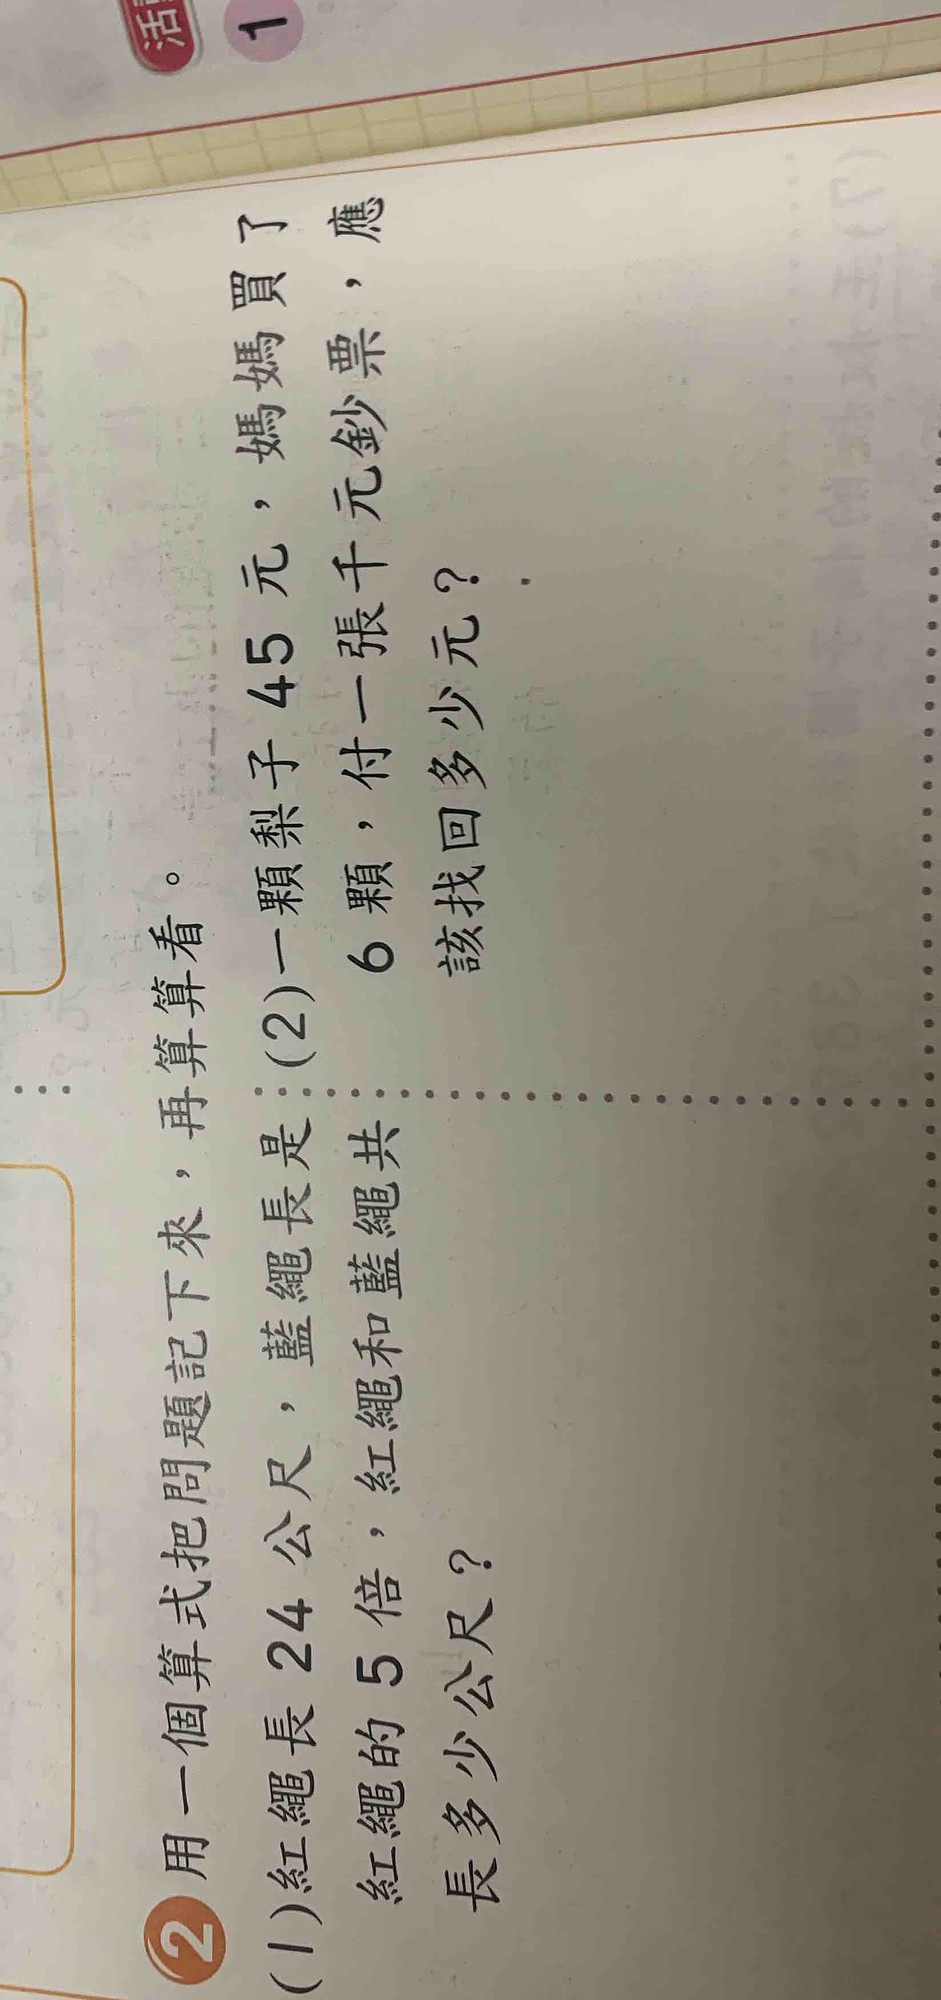 活
1
2 用一個算式把問題記下來，再算算看。
(1)紅繩長 24 公尺，藍繩長是
紅繩的 5 倍，紅繩和藍繩共
長多少公尺？
(2)一顆梨子 45 元，媽媽買了
6 顆，付一張千元鈔票，應
該找回多少元？